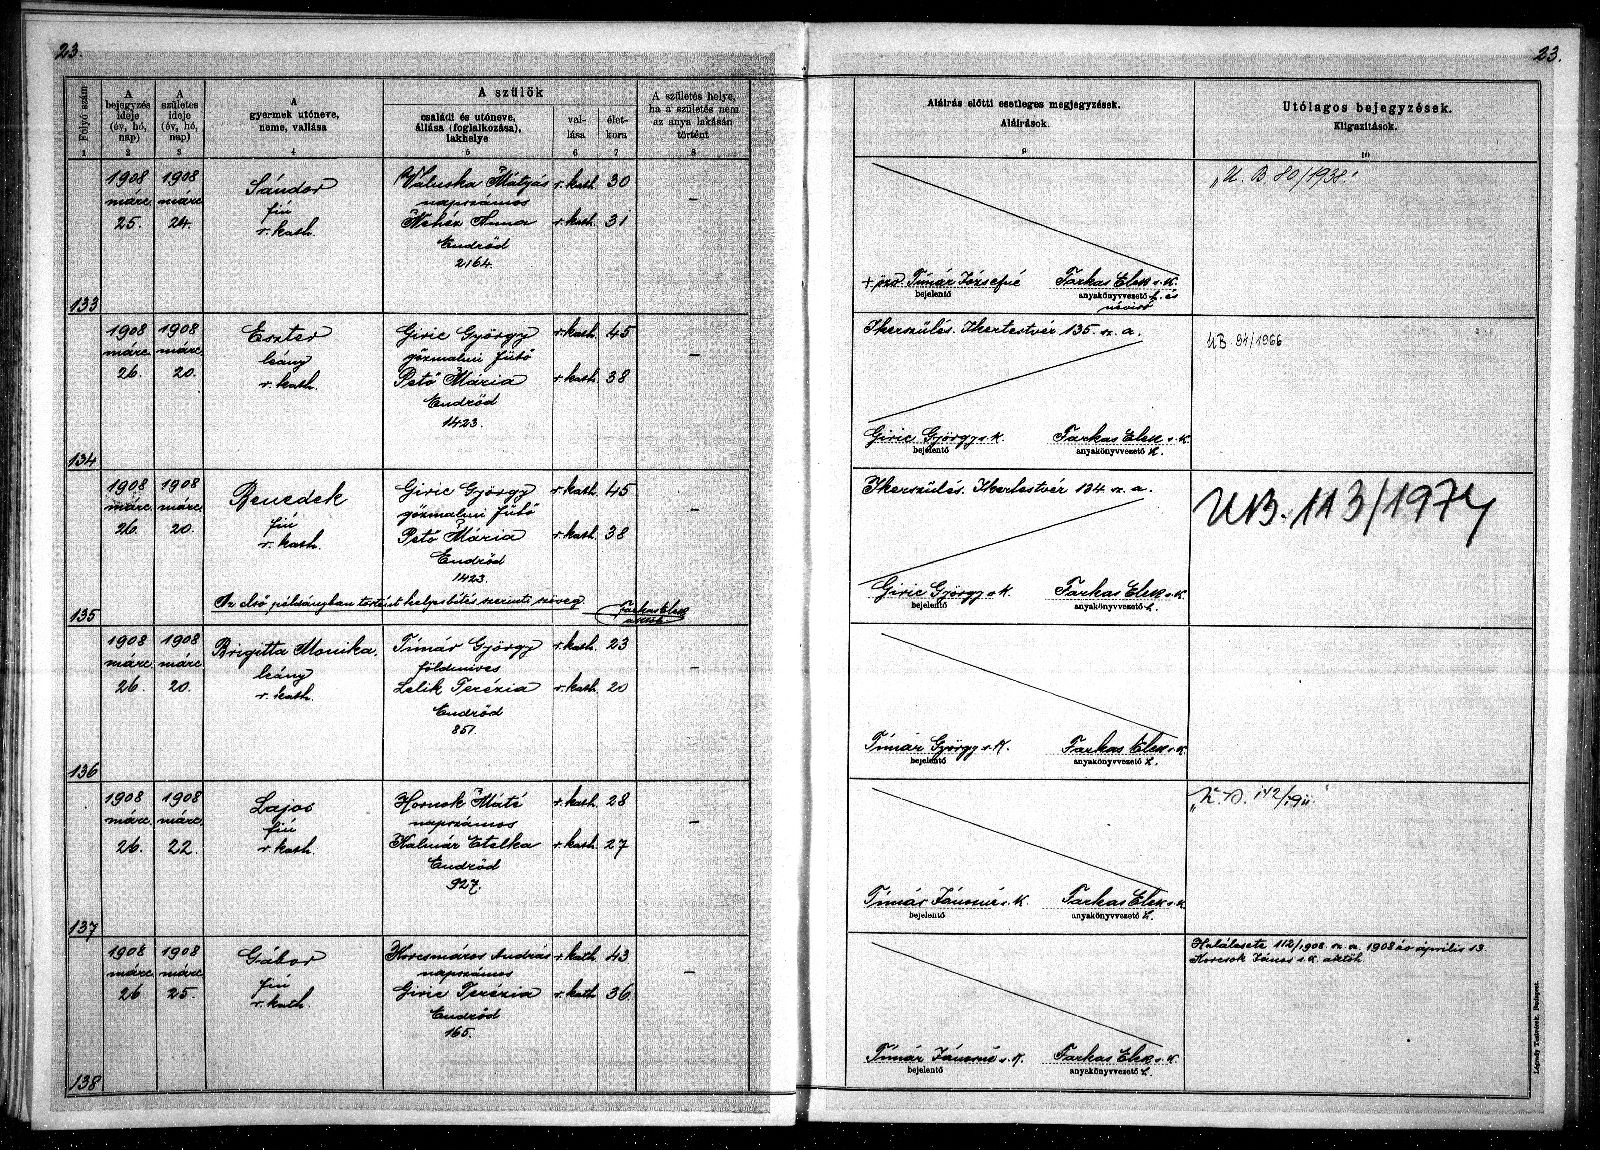 23.
23.
Folyó szám
A bejegyzés ideje (év, hó, nap)
A születés ideje (év, hó, nap)
A gyermek utóneve, neme, vallása
A szülők
családi és utóneve, állása (foglalkozása), lakhelye
vallása
életkora
A születés helye, ha a születés nem az anya lakásán történt
Aláírás előtti esetleges megjegyzések.
Aláírások.
Utólagos bejegyzések.
Kiigazítások.
1 2 3 4 5 6 7 8 9 10
133
1908 márc. 25.
1908 márc. 24.
Sándor
fiú
r. kath.
Valuska Mátyás r. kath. 30
napszámos
Nehéz Anna r. kath. 31
Endrőd
2164.
–
+ özv. Timár Józsefné
bejelentő
Farkas Elek s. k.
anyakönyvvezető h. és
névíró
"U. B. 80/1938."
134
1908 márc. 26.
1908 márc. 20.
Eszter
leány
r. kath.
Giric György r. kath. 45
gőzmalmi fűtő
Pető Mária r. kath. 38
Endrőd
1423.
–
Ikerszülés. Ikertestvér 135. sz. a.
Giric György s. k.
bejelentő
Farkas Elek s. k.
anyakönyvvezető h.
UB. 94/1966
135
1908 márc. 26.
1908 márc. 20.
Benedek
fiú
r. kath.
Giric György r. kath. 45
gőzmalmi fűtő
Pető Mária r. kath. 38
Endrőd
1423.
–
Az első példányban történt helyesbítés szerinti szöveg.
Farkas Elek
Ikerszülés. Ikertestvér 134 sz. a.
Giric György s. k.
bejelentő
Farkas Elek s. k.
anyakönyvvezető h.
UB. 113/1974
136
1908 márc. 26.
1908 márc. 20.
Brigitta Monika.
leány
r. kath.
Timár György r. kath. 23
földmíves
Lelik Terézia r. kath. 20
Endrőd
851.
–
Timár György s. k.
bejelentő
Farkas Elek s. k.
anyakönyvvezető h.
137
1908 márc. 26.
1908 márc. 22.
Lajos
fiú
r. kath.
Hornok Máté r. kath. 28
napszámos
Kalmár Etelka r. kath. 27
Endrőd
927.
–
Timár Jánosné s. k.
bejelentő
Farkas Elek s. k.
anyakönyvvezető h.
138
1908 márc. 26
1908 márc. 25.
Gábor
fiú
r. kath.
Korcsmáros András r. kath. 43
napszámos
Giric Terézia r. kath. 36.
Endrőd
165.
–
Timár Jánosné s. k.
bejelentő
Farkas Elek s. k.
anyakönyvvezető h.
Halálesete 112/1908. sz. a. 1908 év április 13.
Korcsok János s. k. aktőh.
Légrády Testvérek, Budapest.